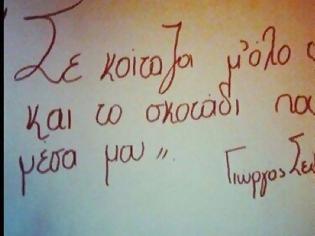 Σε κοίταζα μ' όλο
και το σκοτάδι
μέσα μου"
Γιώργος